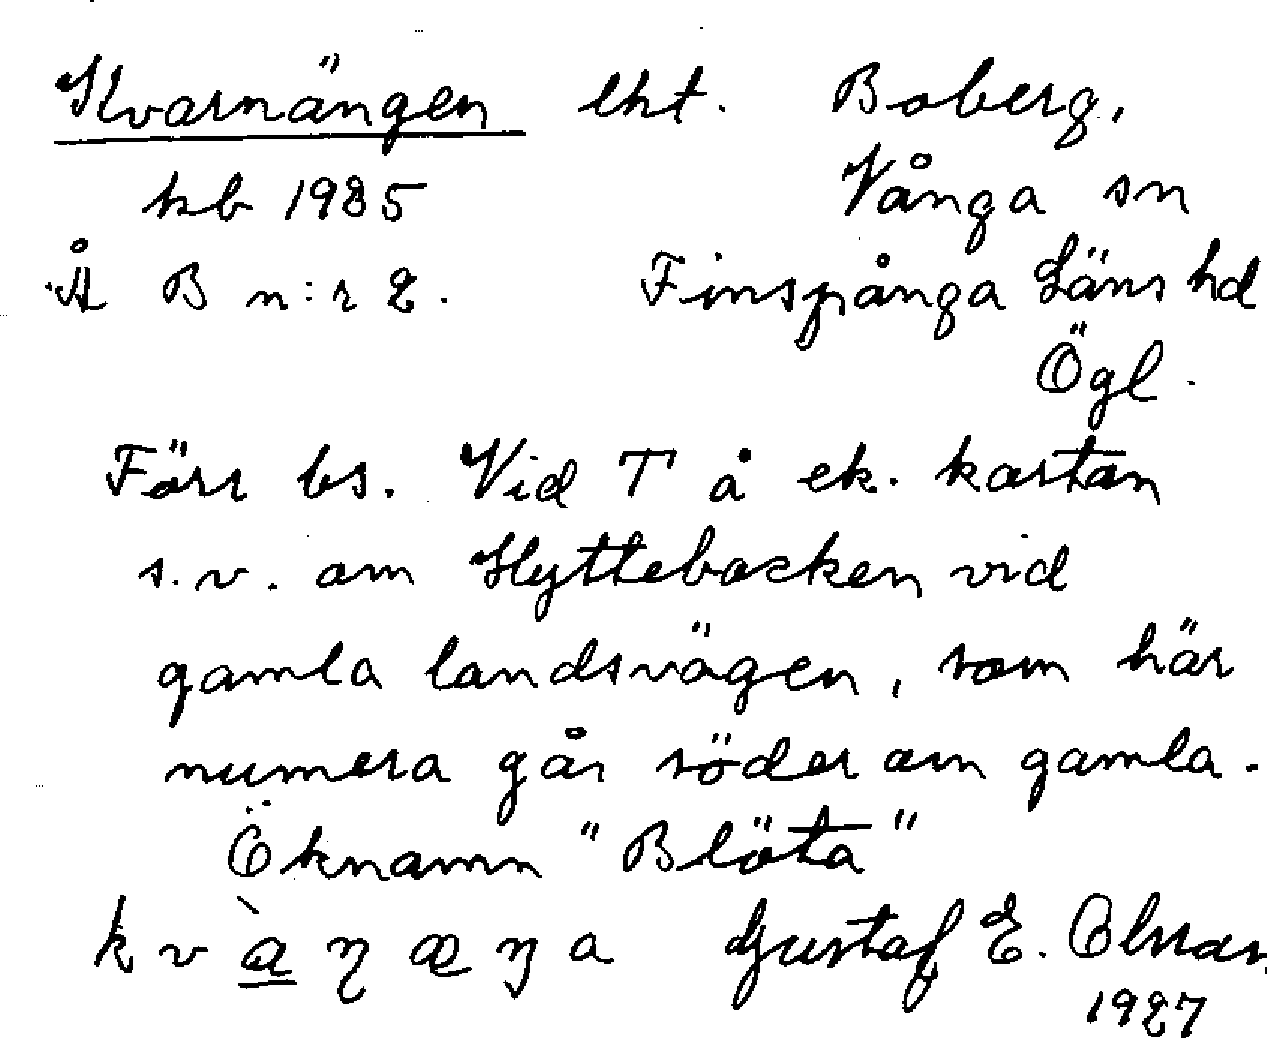 Kvarnängen lht. Boberg,
kb 1985 Vånga sn
Å B n:r 2. Finspånga Läns hd
Ögl.
Förr bs. Vid T å ek. kartan
s.v. om Hyttebacken vid
gamla landsvägen, som här
numera går söder om gamla.
Öknamn "Blöta"
Gustaf E. Olsson
1927